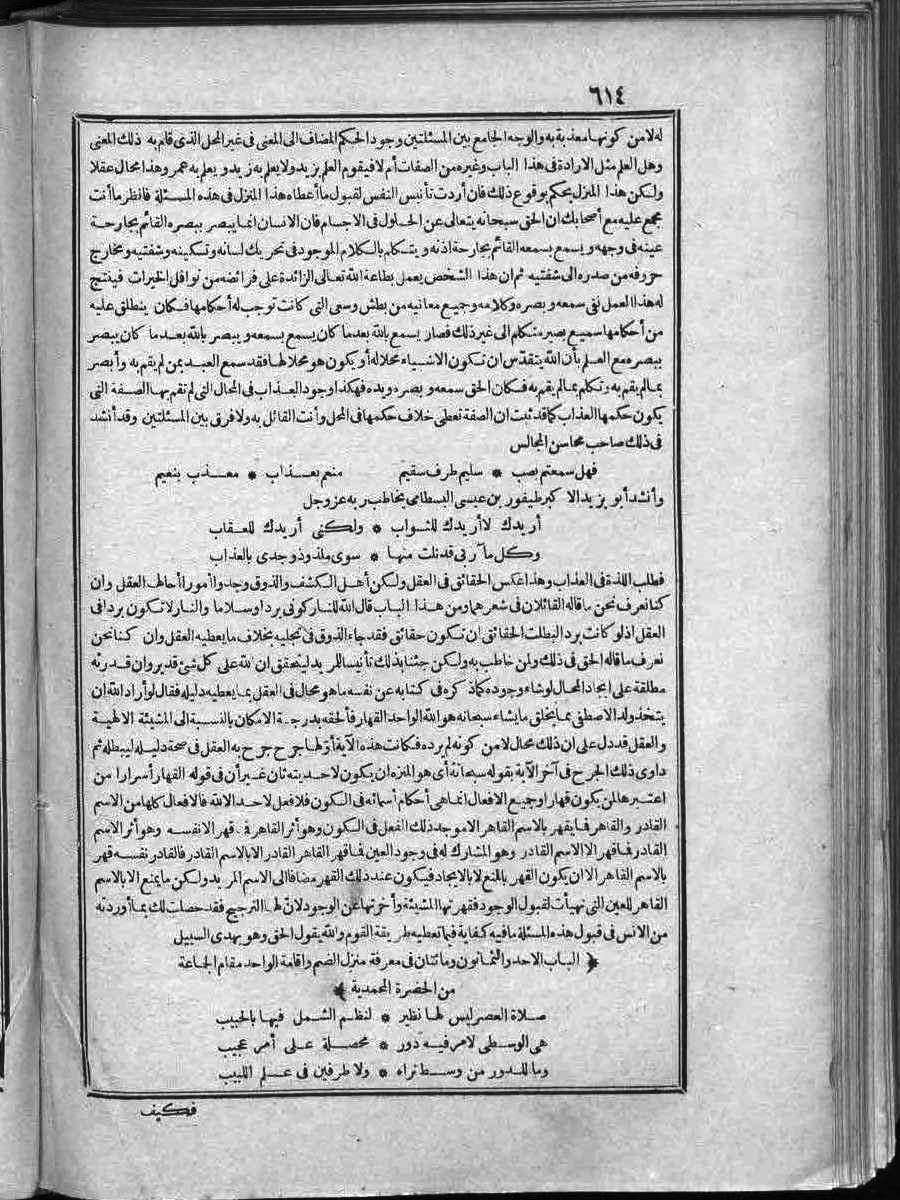 ٦١٤
له لا من كونها معذبة به والوجه الجامع بين المسئلتين وجود الحكم المضاف الى المعنى فى غير المحل الذى قام به ذلك المعنى
وهل العلم مثل الارادة فى هذا الباب وغيره من الصفات أم لا فيقوم العلم بزيد ولا يعلم به زيد ويعلم به عمر وهذا محال عقلا
ولكن هذا المنزل يحكم بوقوع ذلك فان أردت تأنيس النفس لقبول ما أعطاه هذا المنزل فى هذه المسئلة فانظر ما أنت
مجمع عليه مع أصحابك ان الحق سبحانه يتعالى عن الحلول فى الاجسام فان الانسان انما يبصر ببصره القائم بجارحة
عينه فى وجهه ويسمع بسمعه القائم بجارحة اذنه ويتكلم بالكلام الموجود فى تحريك لسانه وتسكينه وشفتيه ومخارج
حروفه من صدره الى شفتيه ثم ان هذا الشخص يعمل بطاعة الله تعالى الزائدة على فرائضه من نوافل الخيرات فينتج
له هذا العمل نفى سمعه وبصره وكلامه وجميع معانيه من بطش وسعى التى كانت توجب له أحكامها فكان ينطلق عليه
من أحكامها سميع بصير متكلم الى غير ذلك فصار يسمع بالله بعد ما كان يسمع بسمعه ويبصر بالله بعد ما كان يبصر
ببصره مع العلم بأن الله يتقدّس ان تكون الاشياء محلا له أو يكون هو محلا لها فقد سمع العبد بمن لم يقم به وأبصر
بما لم يقم به وتكلم بما لم يقم به فكان الحق سمعه وبصره ويده فهكذا وجود العذاب فى المحال التى لم تقم بها الصفة التى
يكون حكمها العذاب كما قد ثبت ان الصفة تعطى خلاف حكمها فى المحل وأنت القائل به ولا فرق بين المسئلتين وقد أنشد
فى ذلك صاحب محاسن المجالس
فهل سمعتم بصب * سليم طرف سقيم منعم بعذاب * معذب بنعيم
وأنشد أبو يزيد الاكبر طيفور بن عيسى البسطامى يخاطب ربه عز وجل
أريدك لا أريدك للثواب * ولكنى أريدك للعقاب
وكل مآربى قد نلت منها * سوى ملذوذ وجدى بالعذاب
فطلب اللذة فى العذاب وهذا عكس الحقائق فى العقل ولكن أهل الكشف والذوق وجدوا أمورا أحالها العقل وان
كنا نعرف نحن ما قاله القائلان فى شعرهما ومن هذا الباب قال الله للنار كونى بردا وسلاما والنار لا تكون بردا فى
العقل اذ لو كانت بردا لبطلت الحقائق ان تكون حقائق فقد جاء الذوق فى تجليه بخلاف ما يعطيه العقل وان كنا نحن
نعرف ما قاله الحق فى ذلك ولمن خاطب به ولكن جئنا بذلك تأنيسا للمريد ليتحقق ان الله على كل شئ قدير وان قدرته
مطلقة على ايجاد المحال لو شاء وجوده كما ذكره فى كتابه عن نفسه ما هو محال فى العقل بما يعطيه دليله فقال لو أراد الله ان
يتخذ ولدا لاصطفى مما يخلق ما يشاء سبحانه هو الله الواحد القهار فألحقه بدرجة الامكان بالنسبة الى المشيئة الالهية
والعقل قد دل على ان ذلك محال لا من كونه لم يرده فكانت هذه الآية أوّلها جرح جرح به العقل فى صحة دليله ليبطله ثم
داوى ذلك الجرح فى آخر الآية بقوله سبحانه أى هو المنزه ان يكون لاحديته ثان غير أن فى قوله القهار أسرارا من
اعتبرها لمن يكون قهارا وجميع الافعال انما هى أحكام أسمائه فى الكون فلا فعل لاحد الا الله فالافعال كلها من الاسم
القادر والقاهر فما يقهر بالاسم القاهر الا موجد ذلك الفعل فى الكون وهو أثر القاهر فما قهر الا نفسه وهو أثر الاسم
القادر فما قهر الا الاسم القادر وهو المشارك له فى وجود العين فما قهر القاهر القادر الا بالاسم القادر فالقادر نفسه قهر
بالاسم القاهر الا ان يكون القهر بالمنع لا بالايجاد فيكون عند ذلك القهر مضافا الى الاسم المريد ولكن ما يمنع الا بالاسم
القاهر للعين التى تهيأت لقبول الوجود فقهرتها المشيئة وأخرتها عن الوجود لانّ لها الترجيح فقد حصلت لك بما أوردته
من الانس فى قبول هذه المسئلة ما فيه كفاية فيما تعطيه طريقة القوم والله يقول الحق وهو يهدى السبيل
﴿ الباب الاحد والثمانون ومائتان فى معرفة منزل الضم واقامة الواحد مقام الجماعة
من الحضرة المحمدية ﴾
صلاة العصر ليس لها نظير * لنظم الشمل فيها بالحبيب
هى الوسطى لامر فيه دور * محصلة على أمر عجيب
وما للدور من وسط تراه * ولا طرفين فى علم اللبيب
فكيف